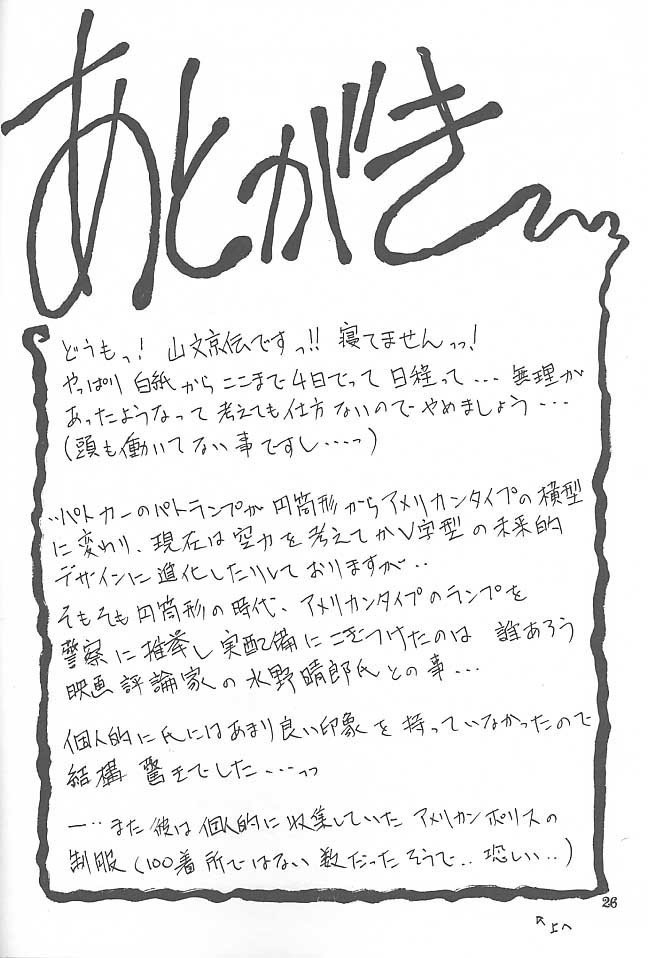 あとがき
どうもっ! 山文京伝ですっ!! 寝てませんっっ!
やっぱり 白紙からここまで4日でって 日程って... 無理が
あったようなって考えても仕方ないのでやめましょう...
(頭も働いてない事ですし....っ)
..パトカーのパトランプが円筒形からアメリカンタイプの横型
に変わり、現在は空力を考えてかV字型の未来的
デザインに進化したりしておりますが..
そもそも円筒形の時代、アメリカンタイプのランプを
警察に推挙し実配備にこぎつけたのは 誰あろう
映画評論家の水野晴郎氏との事...
個人的に氏にはあまり良い印象を持っていなかったので
結構 驚きでした....っっ
ー..また彼は個人的に収集していたアメリカンポリスの
制服(100着所ではない数だったそうで..恐しい..)
26
↖上へ